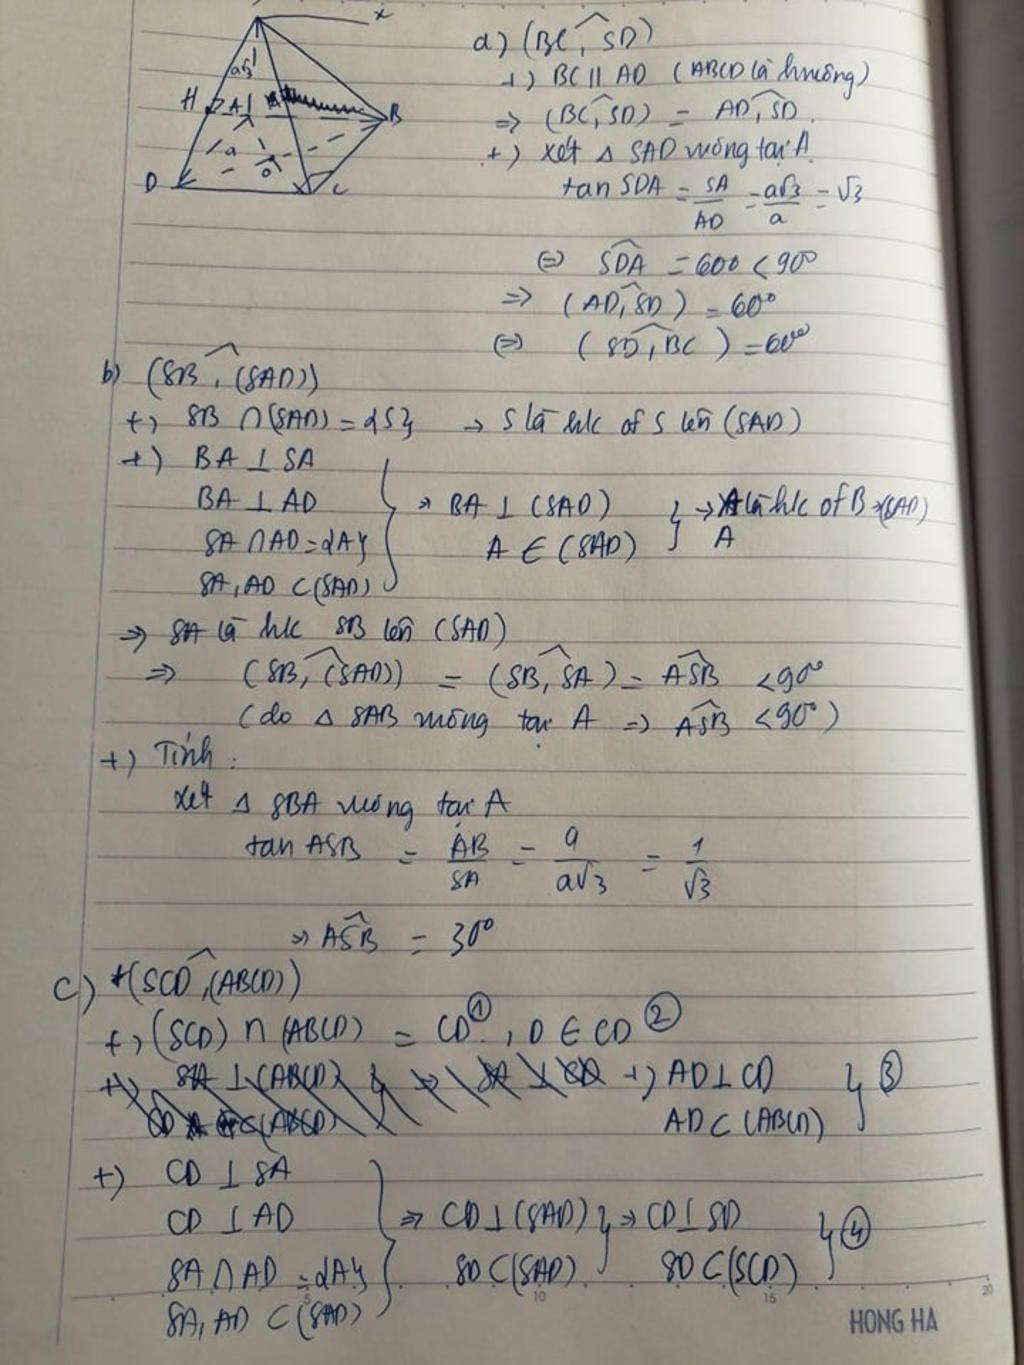 x
a√3
H A B
a
O
D C
a) (BC, SD)
+) BC // AD (ABCD là hvuông)
=> (BC, SD) = AD, SD.
+) Xét Δ SAD vuông tại A
tan SDA = SA/AD = a√3/a = √3
<=> SDA = 60° < 90°
=> (AD, SD) = 60°
<=> (SD, BC) = 60°
b) (SB, (SAD))
+) SB ∩ (SAD) = {S} → S là h/c of S lên (SAD)
+) BA ⊥ SA
BA ⊥ AD
SA ∩ AD = {A}
SA, AD ⊂ (SAD)
} → BA ⊥ (SAD)
A ∈ (SAD)
} → A là h/c of B → (SAD)
A
=> SA là h/c SB lên (SAD)
=> (SB, (SAD)) = (SB, SA) = ASB < 90°
(do Δ SAB vuông tại A => ASB < 90°)
+) Tính:
Xét Δ SBA vuông tại A
tan ASB = AB/SA = a/a√3 = 1/√3
=> ASB = 30°
c) *(SCD, (ABCD))
+) (SCD) ∩ (ABCD) = CD ①, D ∈ CD ②
+) AD ⊥ CD
AD ⊂ (ABCD)
} ③
+) CD ⊥ SA
CD ⊥ AD
SA ∩ AD = {A}
SA, AD ⊂ (SAD)
} => CD ⊥ (SAD)
SD ⊂ (SAD)
} → CD ⊥ SD
SD ⊂ (SCD)
} ④
5 10 15 20
HONG HA